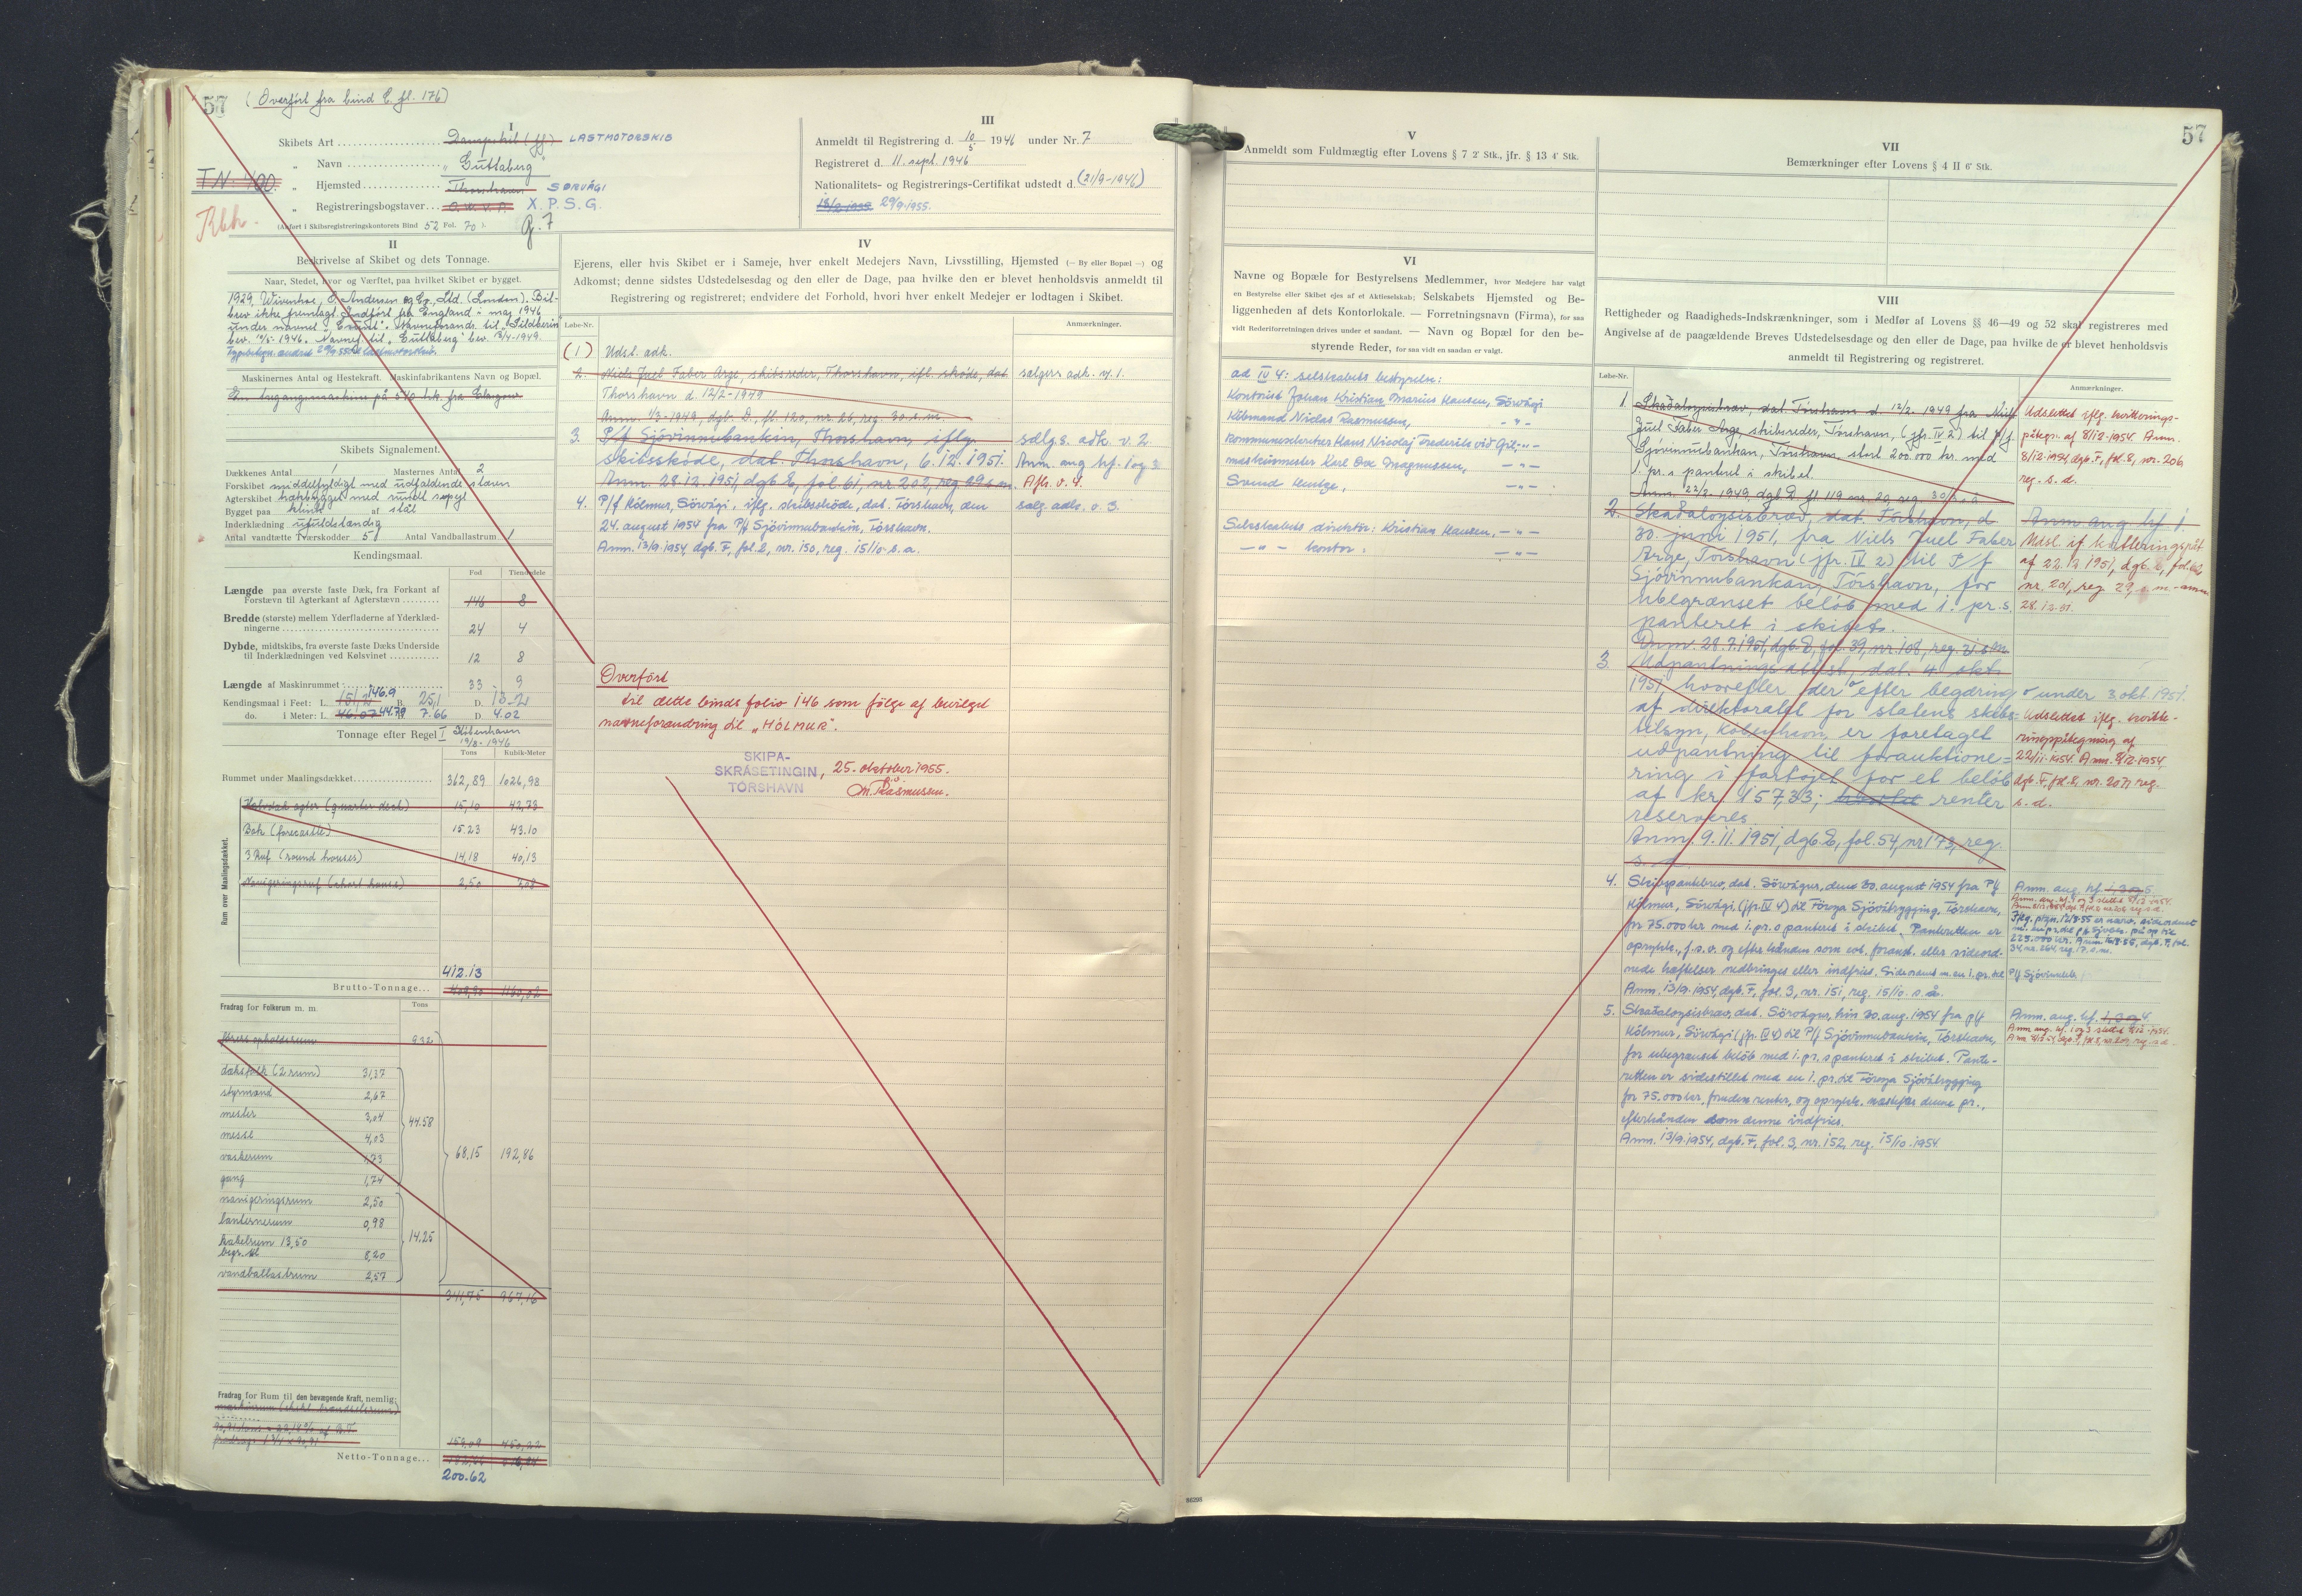 57 (Overført fra bind E fl. 176)
I
Skibets Art Dampskib (ff) LASTMOTORSKIB
„ Navn „Guttaberg"
TN. 400.
„ Hjemsted Thorshavn SØRVÁGI
„ Registreringsbogstaver X.P.S.G.
(Anført i Skibsregistreringskontorets Bind 52 Fol. 70).
II
Beskrivelse af Skibet og dets Tonnage.
Naar, Stedet, hvor og Værftet, paa hvilket Skibet er bygget.
1929, Wivenhoe, Andersen og Co, Ltd. (London). Bil-
brev ikke fremlagt. Indført fra England - maj 1946
under navnet
bev. 1946. Navnef. til „Guttaberg" bev. 13/4-1949.
Maskinernes Antal og Hestekraft. Maskinfabrikantens Navn og Bopæl.
En dampmaskine på 540 hk. fra Glasgow
Skibets Signalement.
Dækkenes Antal 1 Masternes Antal 2
Forskibet middelfyldigt med udfaldende stævn
Agterskibet hækbygget med rundt spejl
Bygget paa klink af stål
Inderklædning ufuldstændig
Antal vandtætte Tværskodder 5 Antal Vandballastrum 1
Kendingsmaal.
Fod Tiendedele
Længde paa øverste faste Dæk, fra Forkant af
Forstævn til Agterkant af Agterstævn 146 8
Bredde (største) mellem Yderfladerne af Yderklæd-
ningerne 24 4
Dybde, midtskibs, fra øverste faste Dæks Underside
til Inderklædningen ved Kølsvinet 12 8
Længde af Maskinrummet 33 9
Kendingsmaal i Feet: L. 146.9 B. 25,1 D. 13.2
do. i Meter: L. 44.79 7.66 D. 4.02
Tonnage efter Regel I København
19/8-1946
Tons Kubik-Meter
Rummet under Maalingsdækket 362,89 1026,98
Rum over Maalingsdækket.
Halvdæk agter (quarter deck) 15,10 42,73
Bak (forecastle) 15.23 43.10
3 Ruf (round houses) 14,18 40,13
Navigeringsruf (chart house) 2,50 7,08
412.13
Brutto-Tonnage 1160,02
Fradrag for Folkerum m. m. Tons
førers opholdsrum 9.32
dæksfolk (2 rum) 31,37
styrmand 2,67
mester 3,04
messe 4,03
vaskerum 1,73
gang 1,74
44.58
navigeringsrum 2,50
lanternerum 0,98
kabelrum 13,50
begr. til 8,20
vandballastrum 2,57
14,25
68,15 192,86
341,75 967,16
Fradrag for Rum til den bevægende Kraft, nemlig:
159,09 450,22
Netto-Tonnage
200.62
III
Anmeldt til Registrering d. 10/5 1946 under Nr. 7
Registreret d. 11. sept. 1946
Nationalitets- og Registrerings-Certifikat udstedt d. (21/9-1946)
29/9.1955.
IV
Ejerens, eller hvis Skibet er i Sameje, hver enkelt Medejers Navn, Livsstilling, Hjemsted (— By eller Bopæl —) og
Adkomst; denne sidstes Udstedelsesdag og den eller de Dage, paa hvilke den er blevet henholdsvis anmeldt til
Registrering og registreret; endvidere det Forhold, hvori hver enkelt Medejer er lodtagen i Skibet.
Løbe-Nr. Anmærkninger.
(1) Udsl. adk.
2. Niels Juel Faber Arge, skibsreder, Thorshavn, ifl. skøde, dat. sælgers adk. v. 1.
Thorshavn d. 12/2-1949
Anm. 1/3-1949, dgb. D, fl. 120, nr. 26, reg. 30. s.m.
3. P/f Sjóvinnubankin, Thorshavn, iflg. sælgs. adk. v. 2
skibsskøde, dat. Thorshavn, 6.12.1951. Anm. ang. hf. 1 og 3
Anm. 28.12.1951, dgb. E, fol. 61, nr. 202, reg. 29 s.m. Afl. v. 4.
4. P/f Hólmur, Sörvági, iflg. skibsskøde, dat. Tórshavn, den sælg. adk. v. 3.
24. august 1954 fra P/f Sjóvinnubankin, Tórshavn.
Anm. 13/9.1954, dgb. F, fol. 2, nr. 150, reg. 15/10. s.a.
Overført
til dette binds folio 146 som følge af bevilget
navneforandring til „HÓLMUR".
SKIPA-
SKRÁSETINGIN, 25. oktober 1955.
TÓRSHAVN M. Rasmussen.
V
Anmeldt som Fuldmægtig efter Lovens § 7 2' Stk., jfr. § 13 4' Stk.
VI
Navne og Bopæle for Bestyrelsens Medlemmer, hvor Medejere har valgt
en Bestyrelse eller Skibet ejes af et Aktieselskab; Selskabets Hjemsted og Be-
liggenheden af dets Kontorlokale. — Forretningsnavn (Firma), for saa
vidt Rederiforretningen drives under et saadant. — Navn og Bopæl for den be-
styrende Reder, for saa vidt en saadan er valgt.
ad IV 4: selskabets bestyrelse:
Kontorist Johan Kristian Marius Hansen, Sörvági
Købmand Niclas Rasmussen, -"-
kommunearbejder Hans Nicolaj Frederik við Gil, -"-
maskinmester Karl Ove Magnussen, -"-
Svend -"-
Selskabets direktør: Kristian Hansen, -"-
-"- kontor: -"-
57
VII
Bemærkninger efter Lovens § 4 II 6' Stk.
VIII
Rettigheder og Raadigheds-Indskrænkninger, som i Medfør af Lovens §§ 46—49 og 52 skal registreres med
Angivelse af de paagældende Breves Udstedelsesdag og den eller de Dage, paa hvilke de er blevet henholdsvis
anmeldt til Registrering og registreret.
Løbe-Nr. Anmærkninger.
1. Skaðaloysisbrav, dat. Tórshavn d. 12/2. 1949 fra Niels
Juel Faber Arge, skibsreder, Tórshavn, (jfr. IV 2) til P/f.
Sjóvinnubankan, Tórshavn, stort 200.000 kr. med
1. pr. s panteret i skibet.
Anm. 22/2. 1949, dgb. D fl 119 nr. 20, reg. 30/3 s.a
Udslettet iflg. kvitterings-
påtegn. af 8/12-1954. Anm.
8/12-1954, dgb. F, fol. 8, nr. 206
reg. s. d.
2. Skaðaloysisbrav, dat. Tórshavn, d
30. juni 1951, fra Niels Juel Faber
Arge, Tórshavn (jfr. IV 2) til P/f
Sjóvinnubankan, Tórshavn, for
ubegrænset beløb med 1. pr. s.
panteret i skibet.
Anm. 28.7.1951, dgb. E, fol. 39, nr. 108, reg. 31 s.m.
Anm ang hf 1.
Udsl. if. kvitteringspåt
af 22.12 1951, dgb. E, fol. 62
nr. 201, reg. 29, s.m.-anm
28.12.51.
3. Udpantningsattest, dat. 4. okt.
1951, hvorefter der efter begæring under 3. okt. 1951.
af direktoratet for statens skibs-
tilsyn, København, er foretaget
udpantning til forauktione-
ring i fartøjet for et beløb
af kr. 157,33; renter
reserveres.
Anm. 9.11.1951, dgb. E, fol. 54, nr 173, reg.
Udslettet iflg. kvitte-
ringspåtegning af
22/11-1954. Anm. 8/12-1954
dgb. F, fol. 8, nr. 207, reg.
s. d.
4. Skibspantebrev, dat. Sörvágur, den 30. august 1954 fra P/f
Hólmur, Sörvági, (jfr. IV 4) til Föroya Sjóvátrygging, Tórshavn,
for 75.000 kr med 1. pr. s panteret i skibet. Panteretten er
oprykk., f. s. v. og efterhånden som evt. foranst. eller sideord-
nede hæftelser nedbringes eller indfries. Sideordnet m. en 1. pr. til P/f Sjóvinnubk.
Anm. 13/9.1954, dgb. F, fol. 3, nr. 151, reg. 15/10. s.a.
5. Skaðaloysisbrav, dat. Sörvágur, hin 30. aug. 1954 fra p/f
Hólmur, Sörvági (jfr. IV 4) til P/f Sjóvinnubankin, Tórshavn,
for ubegrænset beløb med 1. pr. s panteret i skibet. Pante-
retten er sidestillet med en 1. pr. til Föroya Sjóvátrygging
for 75.000 kr, foruden renter, og oprykk. næstefter denne pr.,
efterhånden som denne indfries.
Anm. 13/9.1954, dgb. F, fol. 3, nr. 152, reg. 15/10.1954
86298